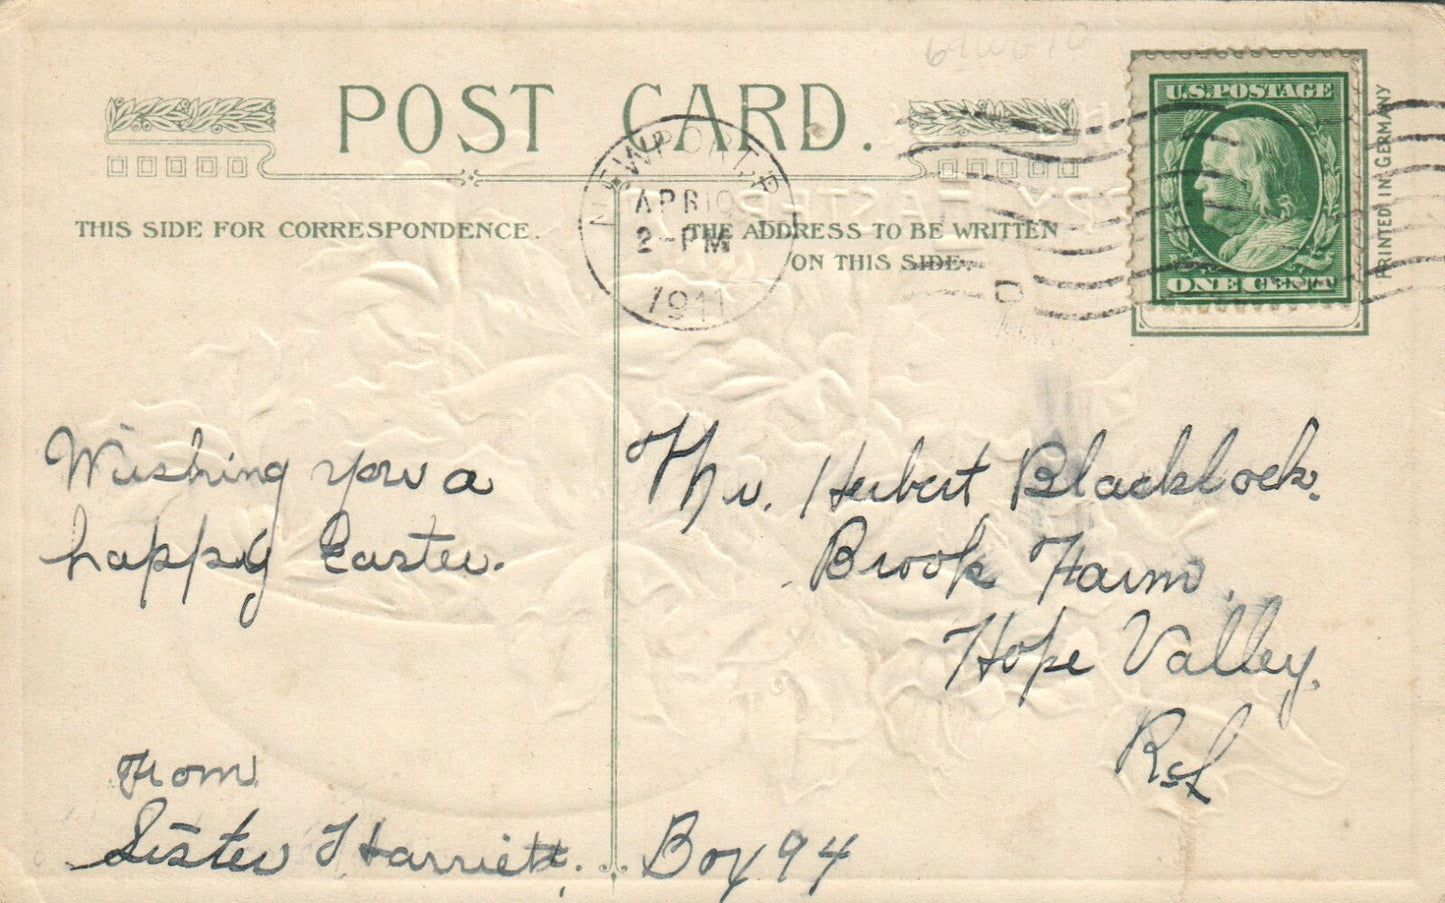 POST CARD.
THIS SIDE FOR CORRESPONDENCE.
THE ADDRESS TO BE WRITTEN
ON THIS SIDE.
NEWPORT R
APR 10
2-PM
1911
U.S. POSTAGE
ONE CENT
PRINTED IN GERMANY
Wishing you a
happy Easter.
From
Sister Harriett.
Mr. Herbert Blacklock.
Brook Farm.
Hope Valley.
R.I.
Box 94